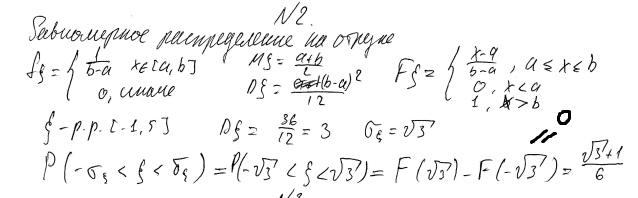 N2.
Равномерное распределение на отрезке
fξ = { 1/(b-a) x∈[a,b] 0, иначе Mξ = (a+b)/2 Dξ = (b-a)²/12 Fξ = { (x-a)/(b-a), a ≤ x ≤ b 0, x<a 1, x>b
ξ - р.р. [-1, 5] Dξ = 36/12 = 3 σξ = √3
P(-σξ < ξ < σξ) = P(-√3 < ξ < √3) = F(√3) - F(-√3) = (√3+1)/6
0